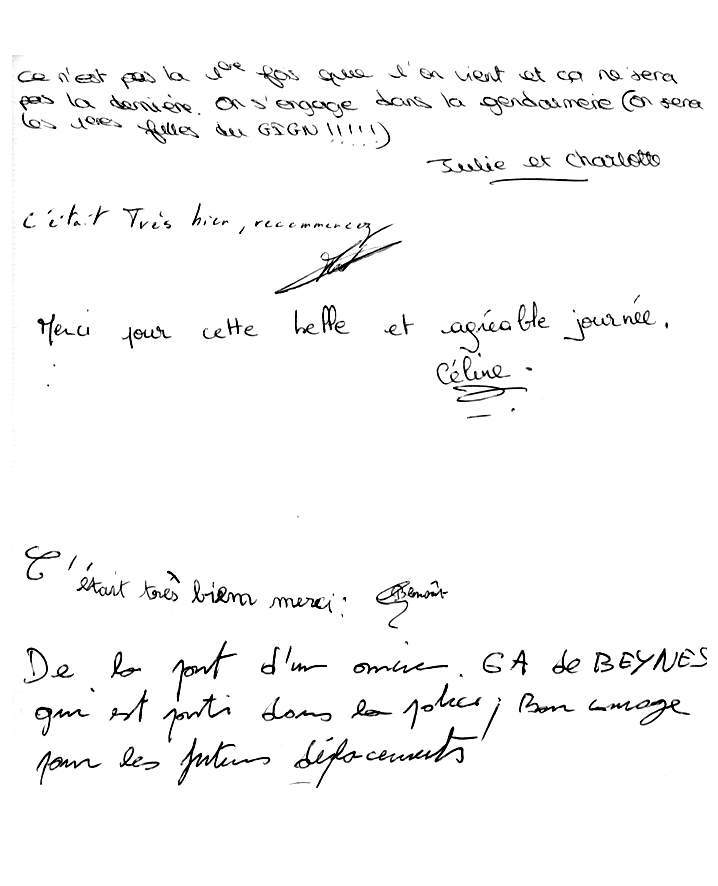 Ce n'est pas la 1ère fois que l'on vient et ça ne sera
pas la dernière. On s'engage dans la gendarmerie (on sera
les 1ères filles du GIGN !!!!!)
Julie et Charlotte
C'était Très bien, recommencez
Merci pour cette belle et agréable journée.
Céline.
C'était très bien merci : Benoît
De la part d'un ancien GA de BEYNES
qui est parti dans la police ; Bon courage
pour les futurs déplacements